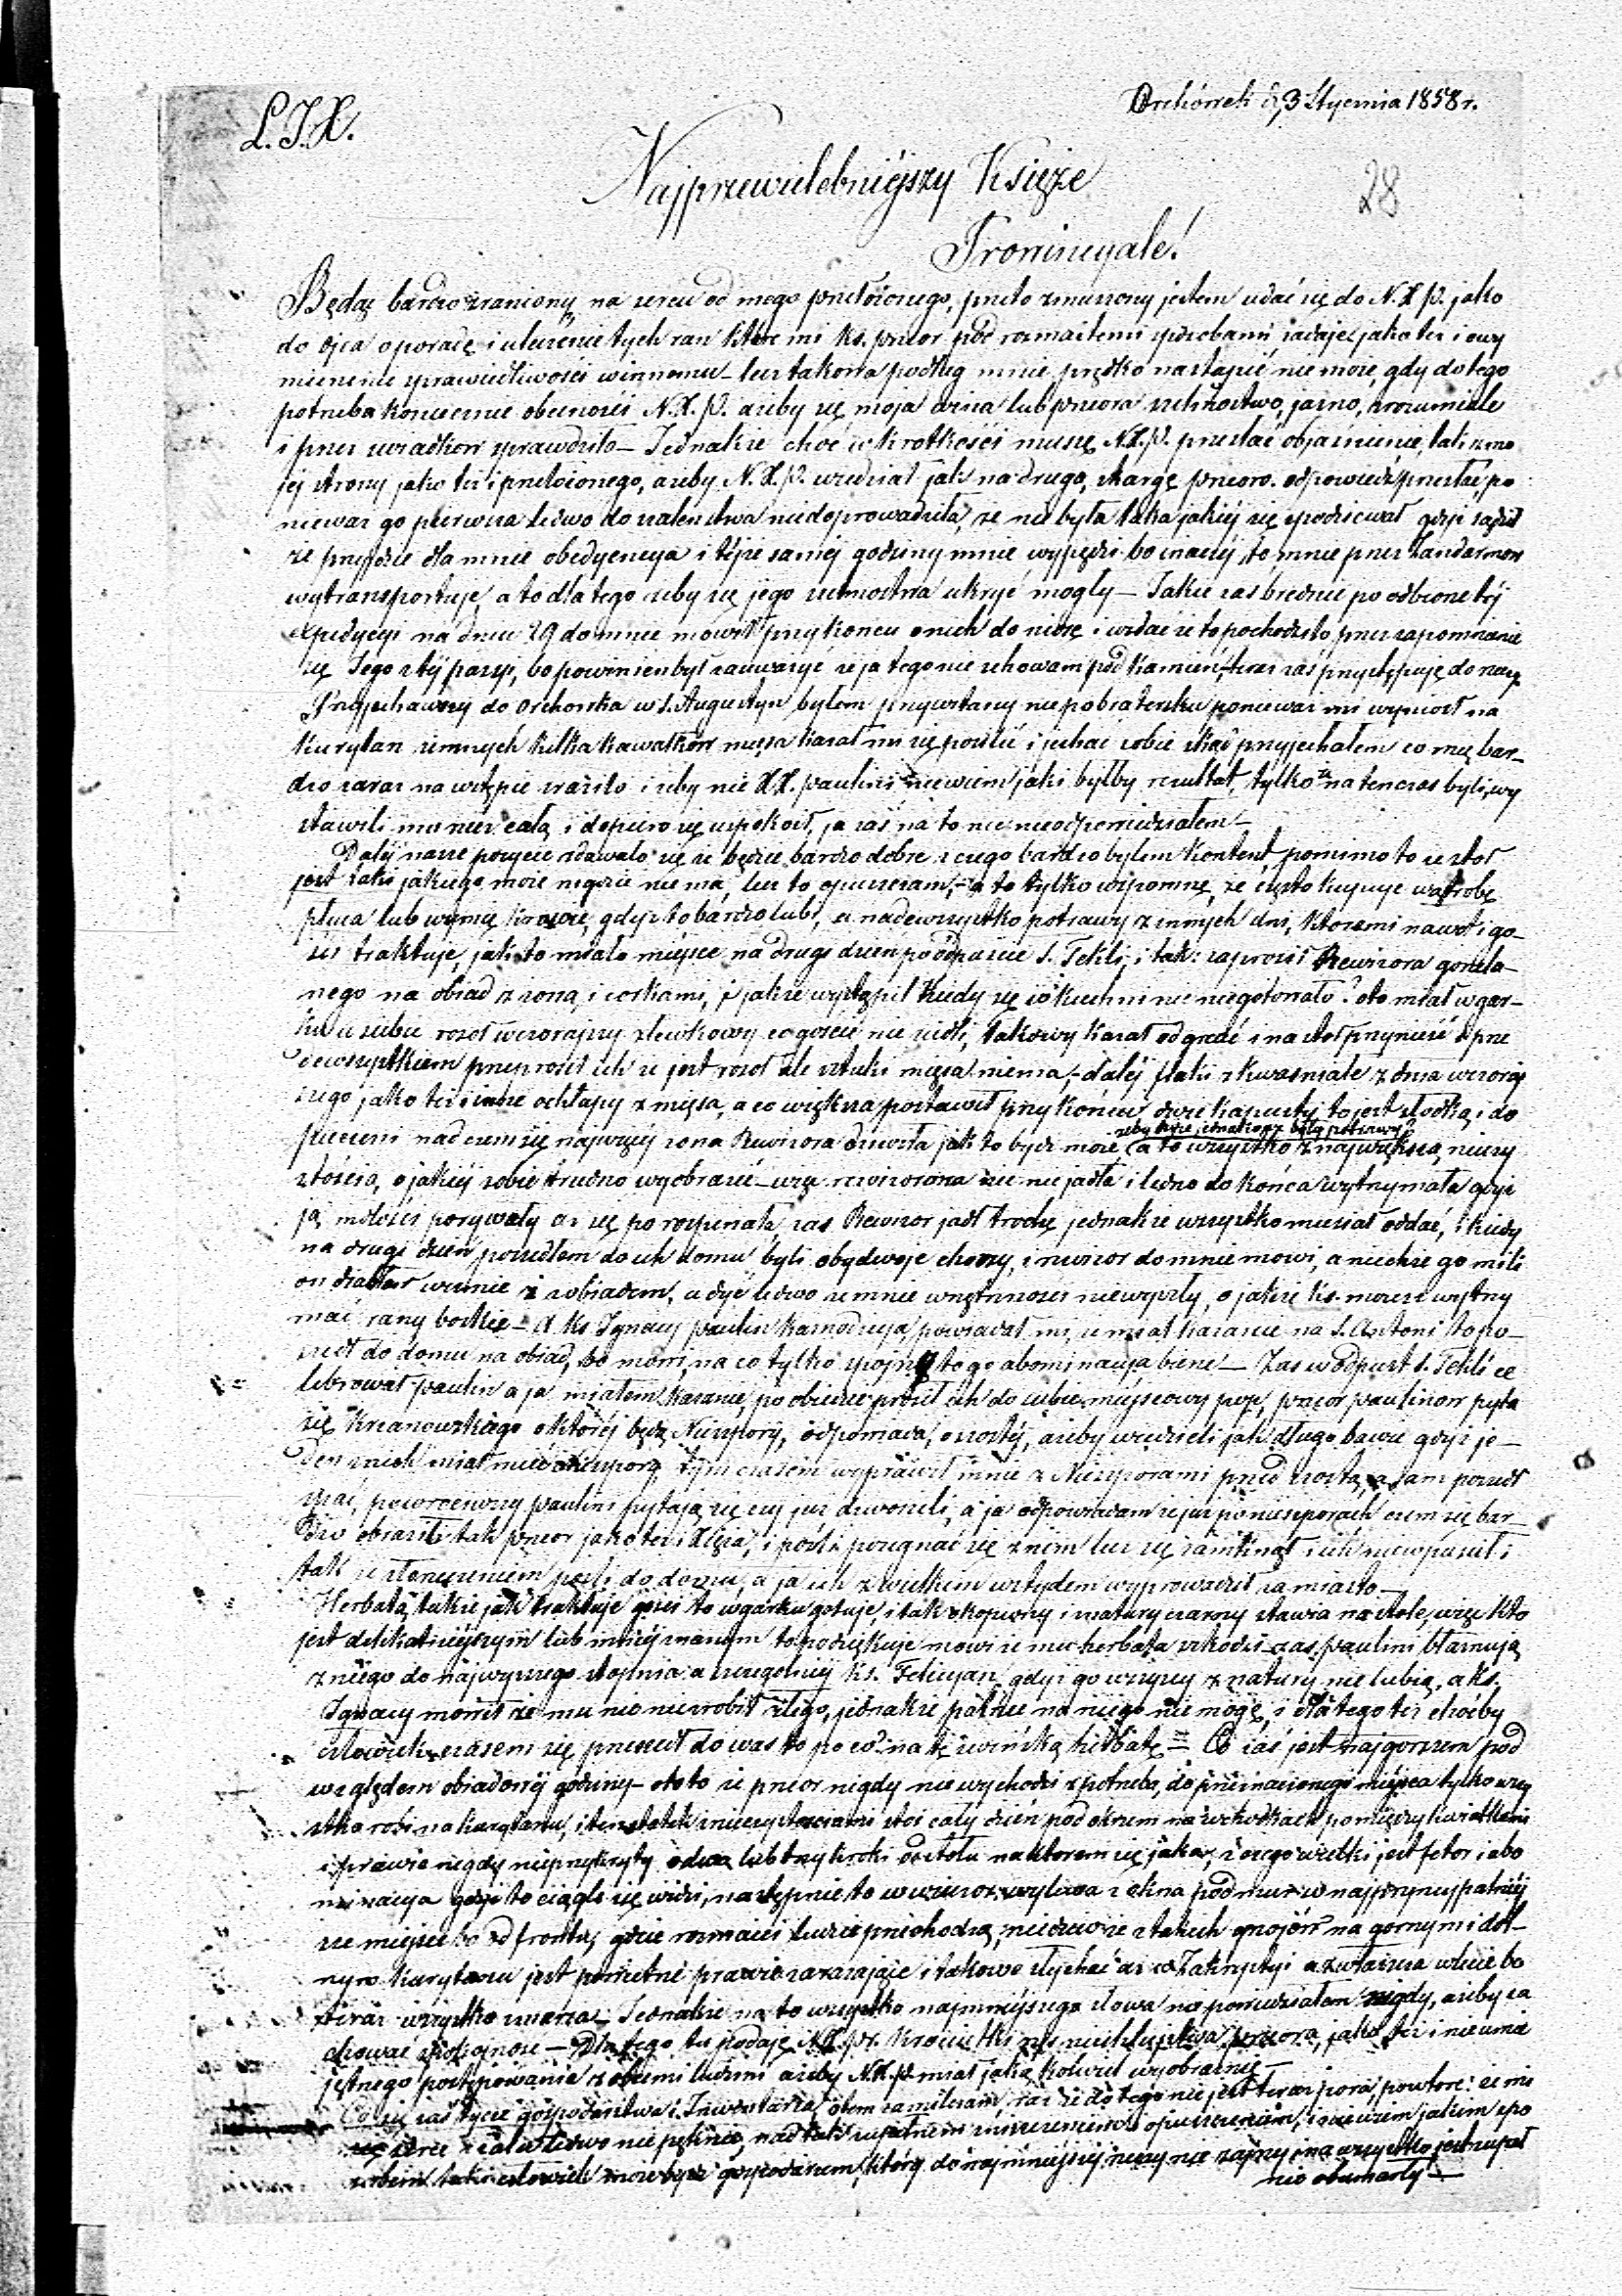 Orchówek d. 3 Stycznia 1858 r.
L.J.X.
Najprzewielebniejszy Księże
28
Prowincyale!
Będąc bardzo zraniony na sercu od mego przełożonego, przeto zmuszony jestem udać się do N.X.P. jako
do ojca o poradę i uleczenie tych ran które mi ks. przeor pod rozmaitemi sposobami zadaje, jako też i wy
mierzenie sprawiedliwości winnemu – lecz takowa podług mnie prędko nastąpić nie może, gdy do tego
potrzeba koniecznie obecności N.X.P. ażeby się moja wina lub przeora szelmostwo, jasno, zrozumiale
i przez świadków sprawdziło – Jednakże choć w krotkości muszę N.X.P. przesłać objaśnienie, tak z mo
jej strony jako też i przełożonego, ażeby N.X.P. wiedział jak na drugą skargę przeora odpowiedź przesłać, po
nieważ go pierwsza ledwo do szaleństwa niedoprowadziła, że nie była taka jakiej się spodziewał gdyż sądził
że przyjdzie dla mnie obedyencya i tejże samej godziny mnie wypędzi bo inaczej to mnie przez Żandarmow
wytransportuje, a to dla tego żeby się jego szelmostwa ukryć mogły – Takie zaś brednie po odbioru tej
expedycyi na dniu 29 do mnie mówił przy końcu onych do niosę i widać że to pochodziło przez zapomnienie
się Jego z tej pasyi, bo powinien był zauważyć że ja tego nie schowam pod kamień, – teraz zaś przystępuję do rzeczy
Przyjechawszy do Orchowka w S. Augustyn byłem przywitany nie po bratersku ponieważ mi wyniosł na
Kurytarz zimnych kilka kawałków mięsa kazał mi się posilić i jechać sobie skąd przyjechałem co mię bar–
dzo zaraz na wstępie zraziło i żeby nie XX. paulini niewiem jaki byłby rezultat, tylko że na tenczas byli, wy
stawili mu rzecz całą i dopiero się uspokoił, ja zaś na to nic nieodpowiedziałem –
Dalej nasze pożycie zdawało się że będzie bardzo dobre z czego bardzo byłem kontent, pomimo to że stoł
jest taki jakiego może nigdzie nie ma, lecz to opuszczam, – a to tylko wspomnę, że często kupuje wątrobę
płuca lub wymię krowie, gdyż to bardzo lubi, a nadewszystko potrawy z innych dni, któremi nawet i go–
ści traktuje, jak to miało miejsce na drugi dzień po odpuście S. Tekli, i tak: zaprosił Rewizora gorzela–
nego na obiad z żoną i corkami, i jakże wystąpił kiedy się w kuchni nic niegotowało? oto miał w gar–
ku u siebie rosoł wczorajszy zlewkowy co goście nie zjedli, takowy kazał odgrzać i na stoł przynieść a prze
dewszystkiem przeprosił ich że jest rosoł ale sztuki mięsa niema; – dalej flaki skwaśniałe z dnia wczoraj
szego jako też i inne ochłapy z mięsa, a co większa postawił przy końcu dwie kapusty to jest słodką i do
żeby dwie jednakowe były potrawy?
pieczeni nad czem się najwięcej żona Rewizora dziwiła jak to być może, (a to wszystko z największą nieczy
stością, o jakiej sobie trudno wyobrazić – więc rewizorowa nic nie jadła i ledwo do końca wytrzymała gdyż
ją mdłości porywały aż się po rozpinała, zaś Rewizor jadł trochę jednakże wszystko musiał oddać, i kiedy
na drugi dzień poszedłem do ich domu byli obydwoje chorzy, i rewizor do mnie mowi, a niechże go mili
on diabłow weźmie z obiadem, a dyć ledwo ze mnie wnętrzności niewyszły, o jakże ks. możesz wytrzy
mać rany boskie – A Ks. Ignacy paulin kaznodzieja, powiadał mi, że miał kazanie na S. Antoni to po–
szedł do domu na obiad, bo mowi, na co tylko spojrzy to go abominacyja bierze – Zaś w odpust S. Tekli ce
lebrował paulin a ja miałem kazanie, po obiedzie prosił ich do siebie miejscowy pop, przeor paulinow pyta
się Krzanowskiego o której będą Nieszpory, odpowiada, o szostej, ażeby wiedzieli jak długo bawić gdyż je–
den z nich miał mieć nieszpory. Tymczasem wyprawił mnie z Nieszporami przed szostą, a sam poszedł
spać, powrociwszy paulini pytają się czy już dzwonili, a ja odpowiadam że już po nieszporach czem się bar–
dzo obrazili tak przeor jako też i Xięża, i poszli pożegnać się z nim lecz się zamknął i ich niewpuścił i
tak ze zmartwieniem poszli do domu, a ja ich z wielkim wstydem wyprowadził za miasto –
Herbatą także jak traktuje gości to w garku gotuje, i tak okopcony i smatury czarny stawia na stole, więc kto
jest delikatniejszym lub mniej znanym to podziękuje mowi że mu herbata szkodzi – zaś paulini błaznują
z niego do najwyższego stopnia a szczególniej ks. Felicyan, gdyż go wszyscy z natury nie lubią, a ks.
Ignacy mowił że mu nic nie zrobił złego, jednakże patrzeć na niego nie mogę, i dla tego też choćby
człowiek czasem się przeszedł do was to po co? na tę świńską herbatę = Co zaś jest najgorszem pod
względem obiadowej godziny – oto to że przeor nigdy nie wychodzi z potrzebą do przeznaczonego miejsca tylko wszy
stko robi na kurytarzu, i ten statek z nieczystościami stoi cały dzień pod oknem na schodkach pomiędzy kwiatkami
i prawie nigdy nieprzykryty o dwa lub trzy kroki od stołu na ktorem się jada, z czego wielki jest fetor i abo
minacyja gdyż to ciągle się widzi, następnie to w wieczor wylewa z okna pod mur w najprzyzwoitszej
sze miejsce bo od frontu, gdzie rozmaici ludzie przechodzą, niedziw że z takich gnojów na gornym i dol–
nym kurytarzu jest powietrze prawie zarażające i takowe słychać aż w Zakrystyi a zwłaszcza w lecie bo
teraz wszystko zmarza – Jednakże na to wszystko najmniejszego słowa nie powiedziałem nigdy, ażeby za
chować spokojność – Dla tego tu podaję N.X.P. kroniczki z niechlujstwa przeora, jako też i nieumie
jętnego postępowania z obcemi ludzmi ażeby N.X.P. miał jakąkolwiek wyobraźnię –
Co się zaś tycze gospodarstwa i Inwentarza otem zamilczam, raz że do tego nie jest teraz pora, powtore: że mi
serce z żalu ledwo nie pęknie, nad tak zupełnem zniszczeniem i opuszczeniem, i niewiem jakim spo
sobem taki człowiek może być gospodarzem, ktory do najmniejszej rzeczy nie zajrzy i na wszystko jest zupeł
nie obumarły –